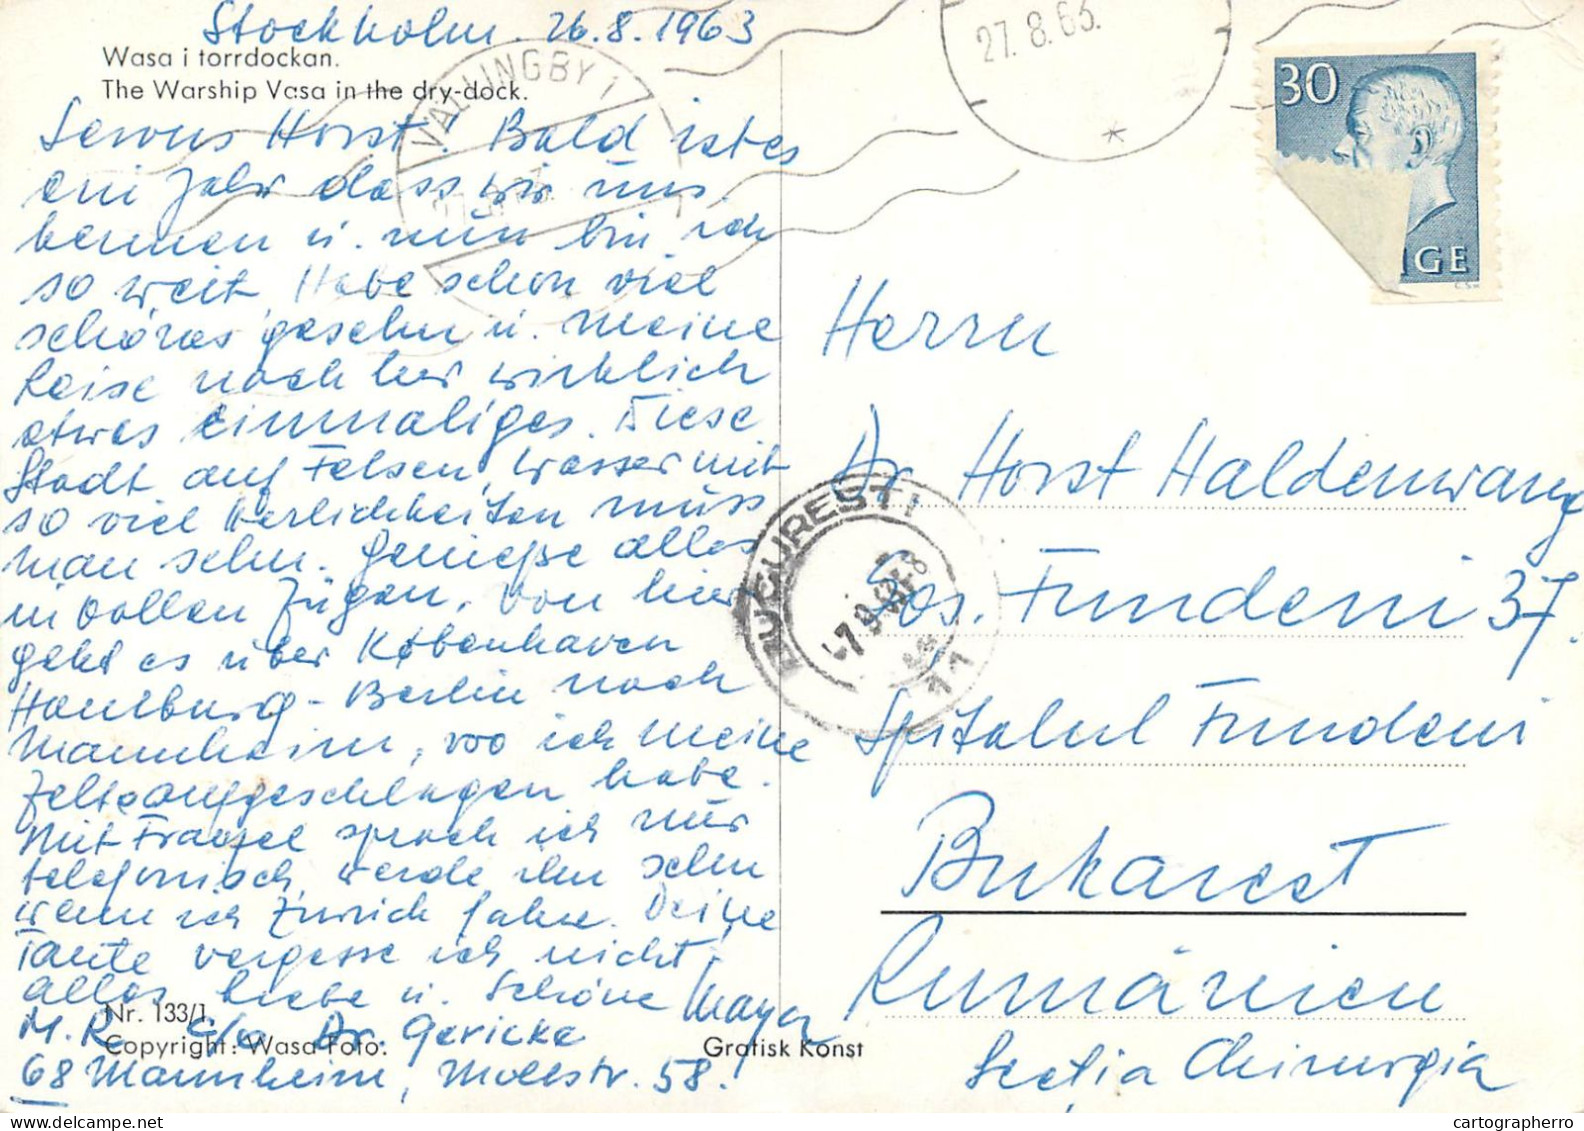 Stockholm. 26.8.1963
Wasa i torrdockan.
The Warship Vasa in the dry-dock.
VÄLLINGBY 1
27.8.63.
30
IGE
Servus Horst! Bald ist es
ein Jahr dass wir uns
kennen u. nun bin ich
so weit. Habe schon viel
schönes gesehn u. meine
Reise nach hier wirklich
etwas einmaliges. Diese
Stadt auf Felsen, wasser mit
so viel Herlichkeiten muss
man sehn. Genieße alles
in vollen Zügen. Von hier
geht es über København
Hamburg - Berlin nach
Mannheim, wo ich meine
Zelte aufgeschlagen habe.
Mit sprach ich nur
telefonisch, werde ihn sehn
wenn ich Zürich fahre. Deine
Tante vergesse ich nicht.
Alles liebe u. Schöne Maya
M.R. c/o Dr. Gericke
68 Mannheim, Mollstr. 58!
Nr. 133/1.
Copyright: Wasa Foto.
Grafisk Konst
BUCUREȘTI
11
Herrn
Dr Horst Haldenwang
Sos. Fundeni 37.
Spitalul Fundeni
Bukarest
Rumänien
Secția Chirurgia
cartographerro